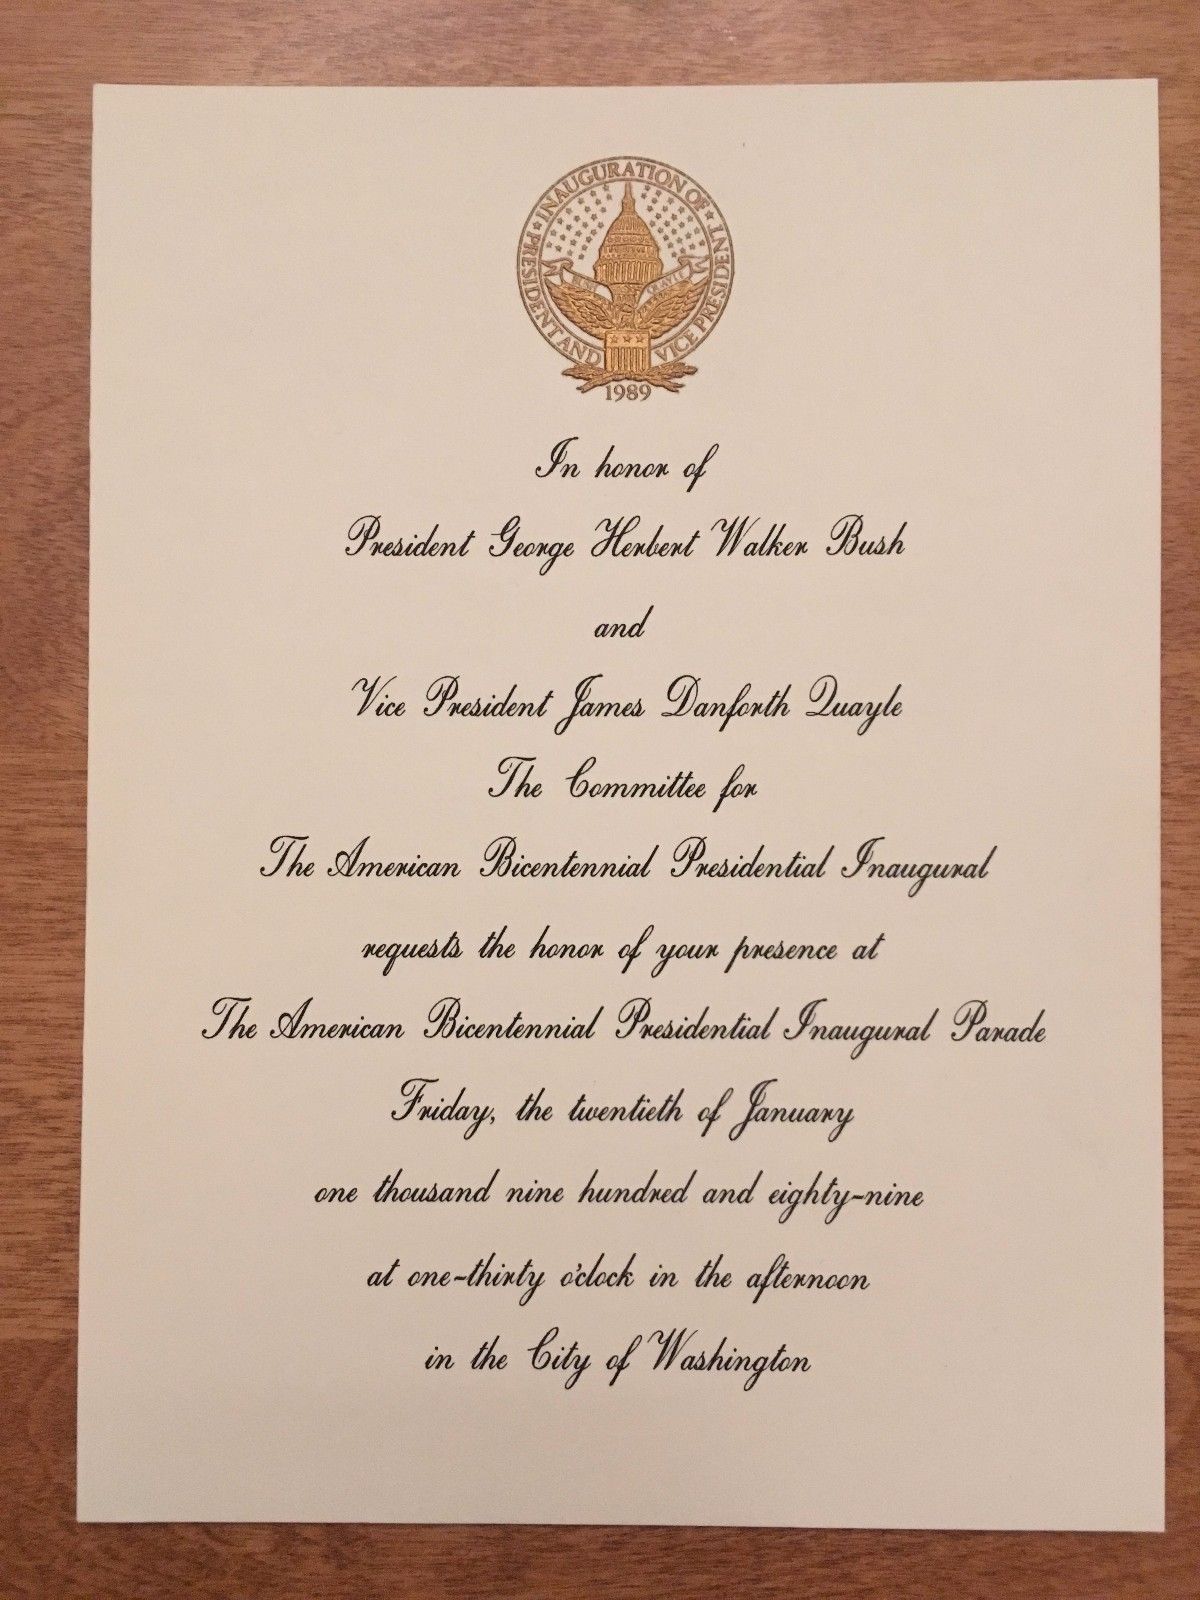 ★ INAUGURATION OF ★
PRESIDENT AND VICE PRESIDENT
BUSH QUAYLE
1989
In honor of
President George Herbert Walker Bush
and
Vice President James Danforth Quayle
The Committee for
The American Bicentennial Presidential Inaugural
requests the honor of your presence at
The American Bicentennial Presidential Inaugural Parade
Friday, the twentieth of January
one thousand nine hundred and eighty-nine
at one-thirty o'clock in the afternoon
in the City of Washington